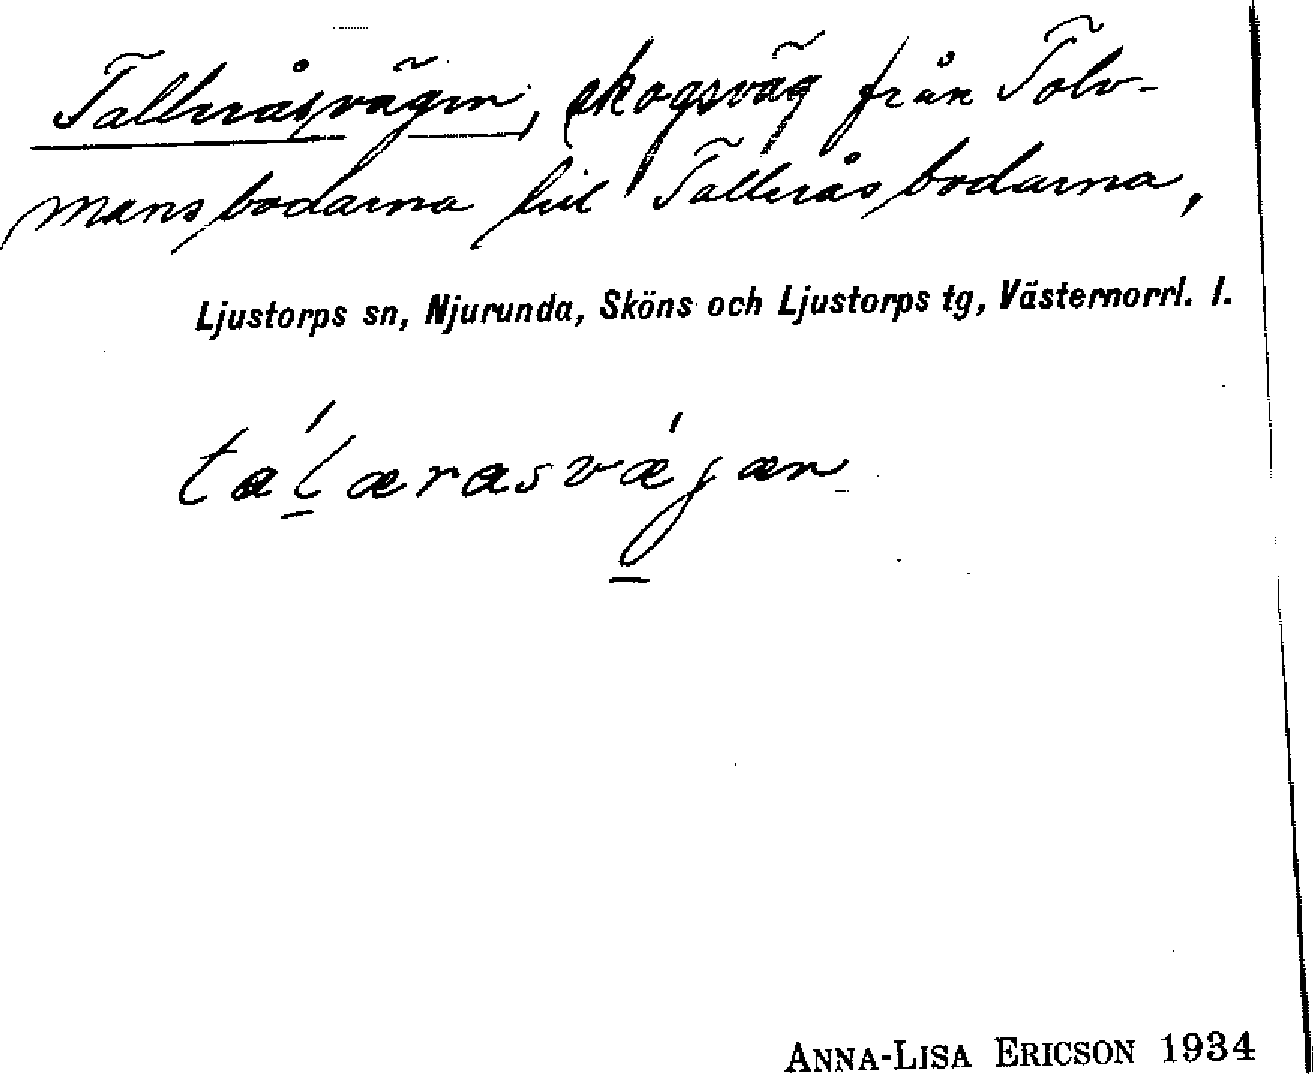 Tallråsvägen, skogsväg från Tolv-
mansbodarna till Tallråsbodarna,
Ljustorps sn, Njurunda, Sköns och Ljustorps tg, Västernorrl. l.
tálærasvǽjæn
ANNA-LISA ERICSON 1934